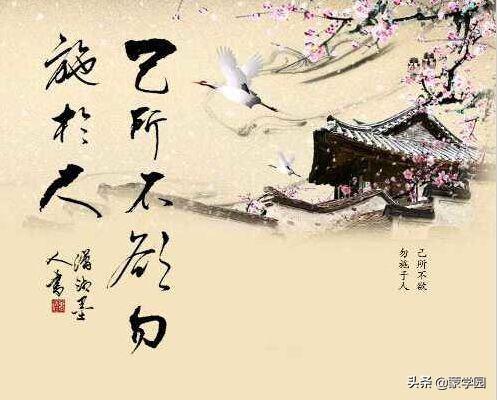 己所不欲勿
施於人
潇湘墨
人書
己所不欲
勿施于人
头条 @蒙学园